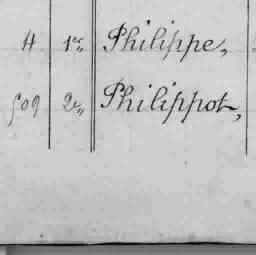 4 1er„ Philippe,
509 2e„ Philippot,